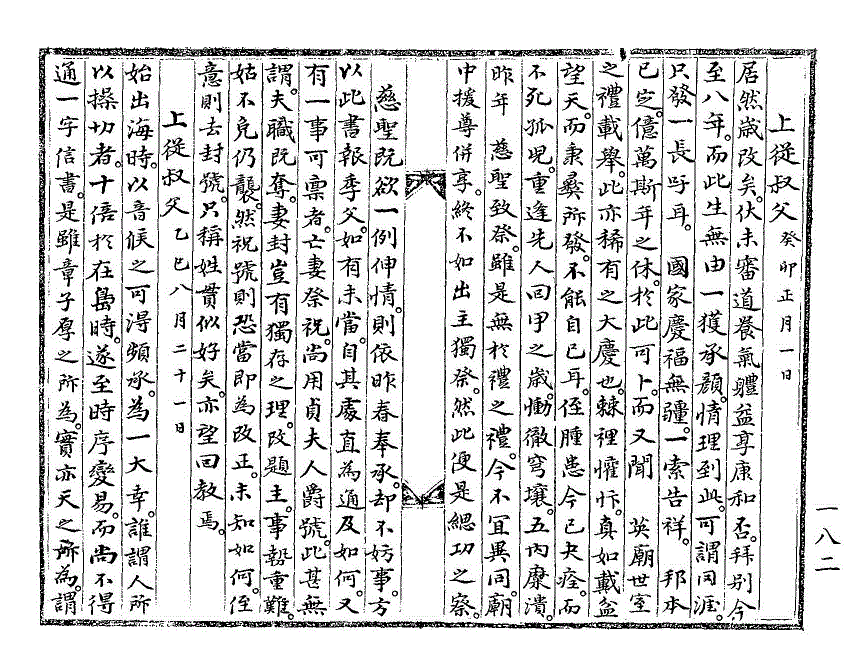 上從叔父 癸卯正月一日
居然歲改矣。伏未審道養氣體益享康和否。拜別今
至八年。而此生無由一獲承顏。情理到此。可謂罔涯。
只發一長吁耳。 國家慶福無疆。一索告祥。 邦本
已定。億萬斯年之休。於此可卜。而又聞 英廟世室
之禮載擧。此亦稀有之大慶也。棘裡懽忭。真如戴盆
望天。而秉彛所發。不能自已耳。侄腫患今已夬痊。而
不死孤兒。重逢先人回甲之歲。慟徹穹壤。五內糜潰。
昨年 慈聖致祭。雖是無於禮之禮。今不宜異同。廟
中援尊併享。終不如出主獨祭。然此便是緦功之察。
慈聖旣欲一例伸情。則依昨春奉承。却不妨事。方
以此書報季父。如有未當。自其處直為通及如何。又
有一事可禀者。亡妻祭祝。尚用貞夫人爵號。此甚無
謂。夫職旣奪。妻封豈有獨存之理。改題主。事穀重難。
姑不免仍襲。然祝號則恐當即為改正。未知如何。侄
意則去封號。只稱姓貫似好矣。亦望回教焉。
上從叔父 乙巳八月二十一日
始出海時。以音候之可得頻承。為一大幸。誰謂人所
以操切者。十倍於在島時。遂至時序變易。而尚不得
通一字信書。是雖章子厚之所為。實亦天之所為。謂
一八二